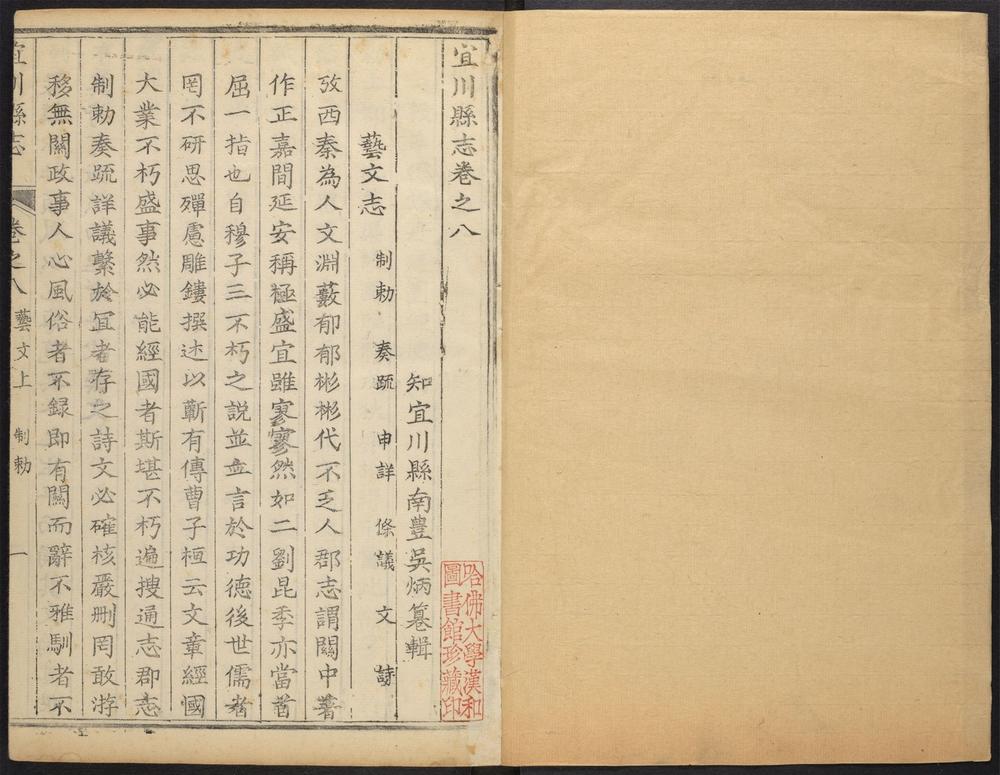 宜川縣志卷之八
知宜川縣南豐吳炳篹輯
藝文志 制勅 奏疏 申詳 條議 文 詩
攷西秦為人文淵藪郁郁彬彬代不乏人郡志謂關中著
作正嘉間延安稱極盛宜雖寥寥然如二劉昆季亦當首
屈一指也自穆子三不朽之說並立言於功德後世儒者
罔不研思殫慮雕鏤撰述以蘄有傳曹子桓云文章經國
大業不朽盛事然必能經國者斯堪不朽遍搜通志郡志
制勅奏疏詳議繫於宜者存之詩文必確核嚴刪罔敢浮
移無關政事人心風俗者不錄即有關而辭不雅馴者不
宜川縣志 卷之八 藝文上 制勅 一
哈佛大學漢和
圖書館珍藏印